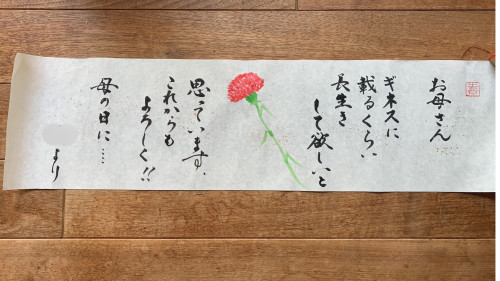 お母さん
ギネスに
載るくらい
長生き
して欲しいと
思っています。
これからも
よろしく!!
母の日に....
より